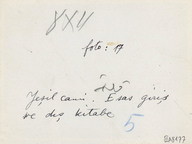 8X11
foto: 17
Yeşil cami. Esas giriş
ve dış kitabe
5